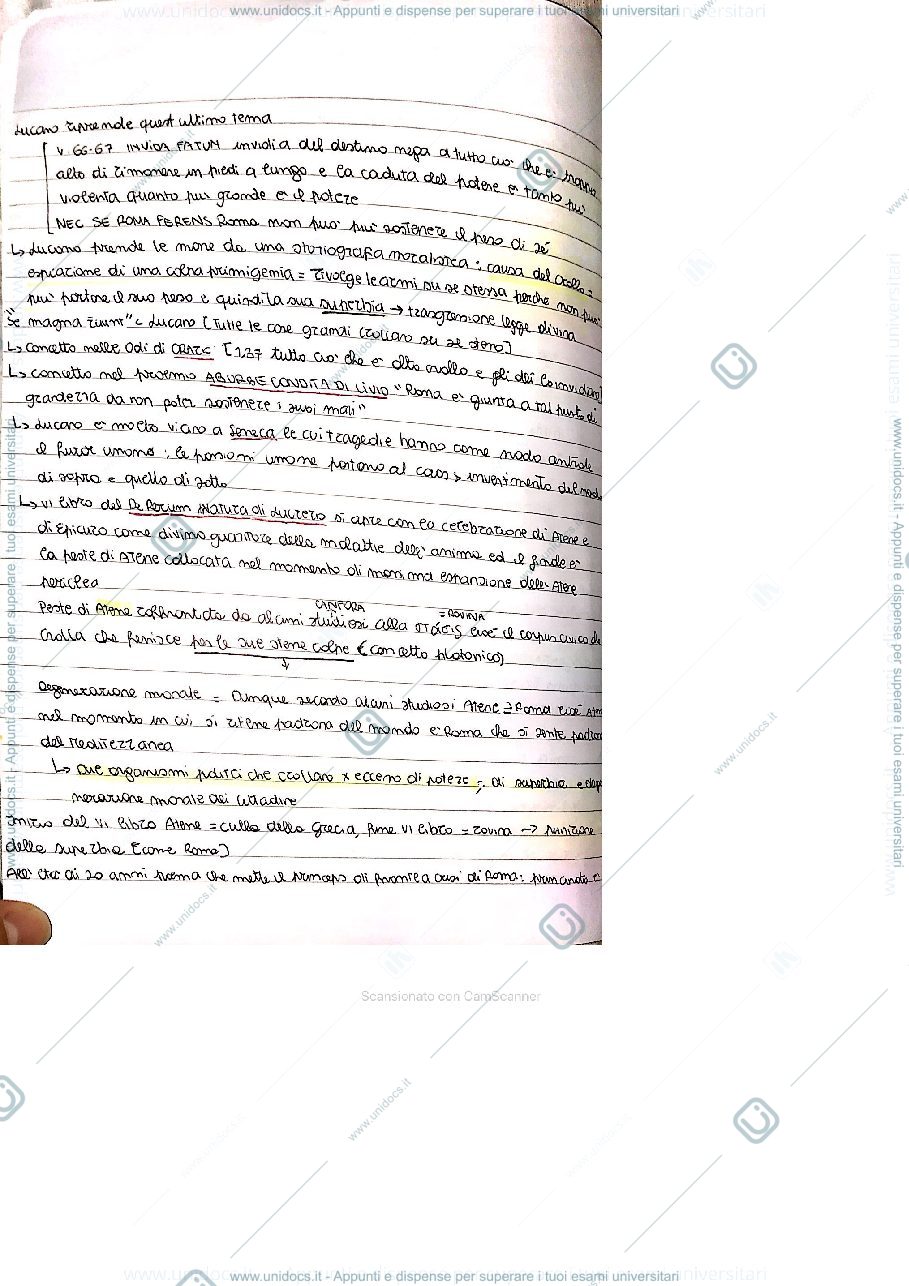 www.unidocs.it - Appunti e dispense per superare i tuoi esami universitari
Lucano riprende quest'ultimo tema
v 66-67 INVIDA FATUM invidia del destino nega a tutto ciò che è troppo
alto di rimanere in piedi a lungo e la caduta del potere è tanto più
violenta quanto più grande è il potere
NEC SE ROMA FERENS Roma non può più sostenere il peso di sé
↳ Lucano prende le mone da una storiografia moralistica: causa del crollo =
espiazione di una colpa primigenia = rivolge le armi su se stessa perché non può
più portare il suo peso e quindi la sua superbia → trasgressione legge divina
"Se magna ruunt" < Lucano [tutte le cose grandi crollano su se stesse]
↳ concetto nelle Odi di [1.37 tutto ciò che è alto crolla e gli dei lo invidiano]
↳ concetto nel proemio AB URBE CONDITA DI LIVIO "Roma è giunta a tal punto di
grandezza da non poter sostenere i suoi mali"
↳ Lucano è molto vicino a Seneca le cui tragedie hanno come nodo centrale
il furor umano: le passioni umane portano al caos > invertimento del mondo
di sopra e quello di sotto
↳ VI libro del De Rerum Natura di Lucrezio si apre con la celebrazione di Atene e
di Epicuro come divino guaritore delle malattie dell'anima ed il finale è
la peste di Atene collocata nel momento di massima espansione dell'Atene
periclea
CANFORA
= ROVINA
Peste di Atene raffrontata da alcuni studiosi alla στάσις cioè il corpus civico che
crolla che perisce per le sue stesse colpe (concetto platonico)
↓
Degenerazione morale = dunque secondo alcuni studiosi Atene = Roma cioè Atene
nel momento in cui si ritiene padrona del mondo è Roma che si sente padrona
del Mediterraneo
↳ due organismi politici che crollano x eccesso di potere, di superbia e dege
nerazione morale dei cittadini
Inizio del VI libro Atene = culla della Grecia, fine VI libro = rovina → punizione
della superbia [come Roma]
All'età di 20 anni poema che mette il princeps di fronte a crisi di Roma:
Scansionato con CamScanner
www.unidocs.it - Appunti e dispense per superare i tuoi esami universitari